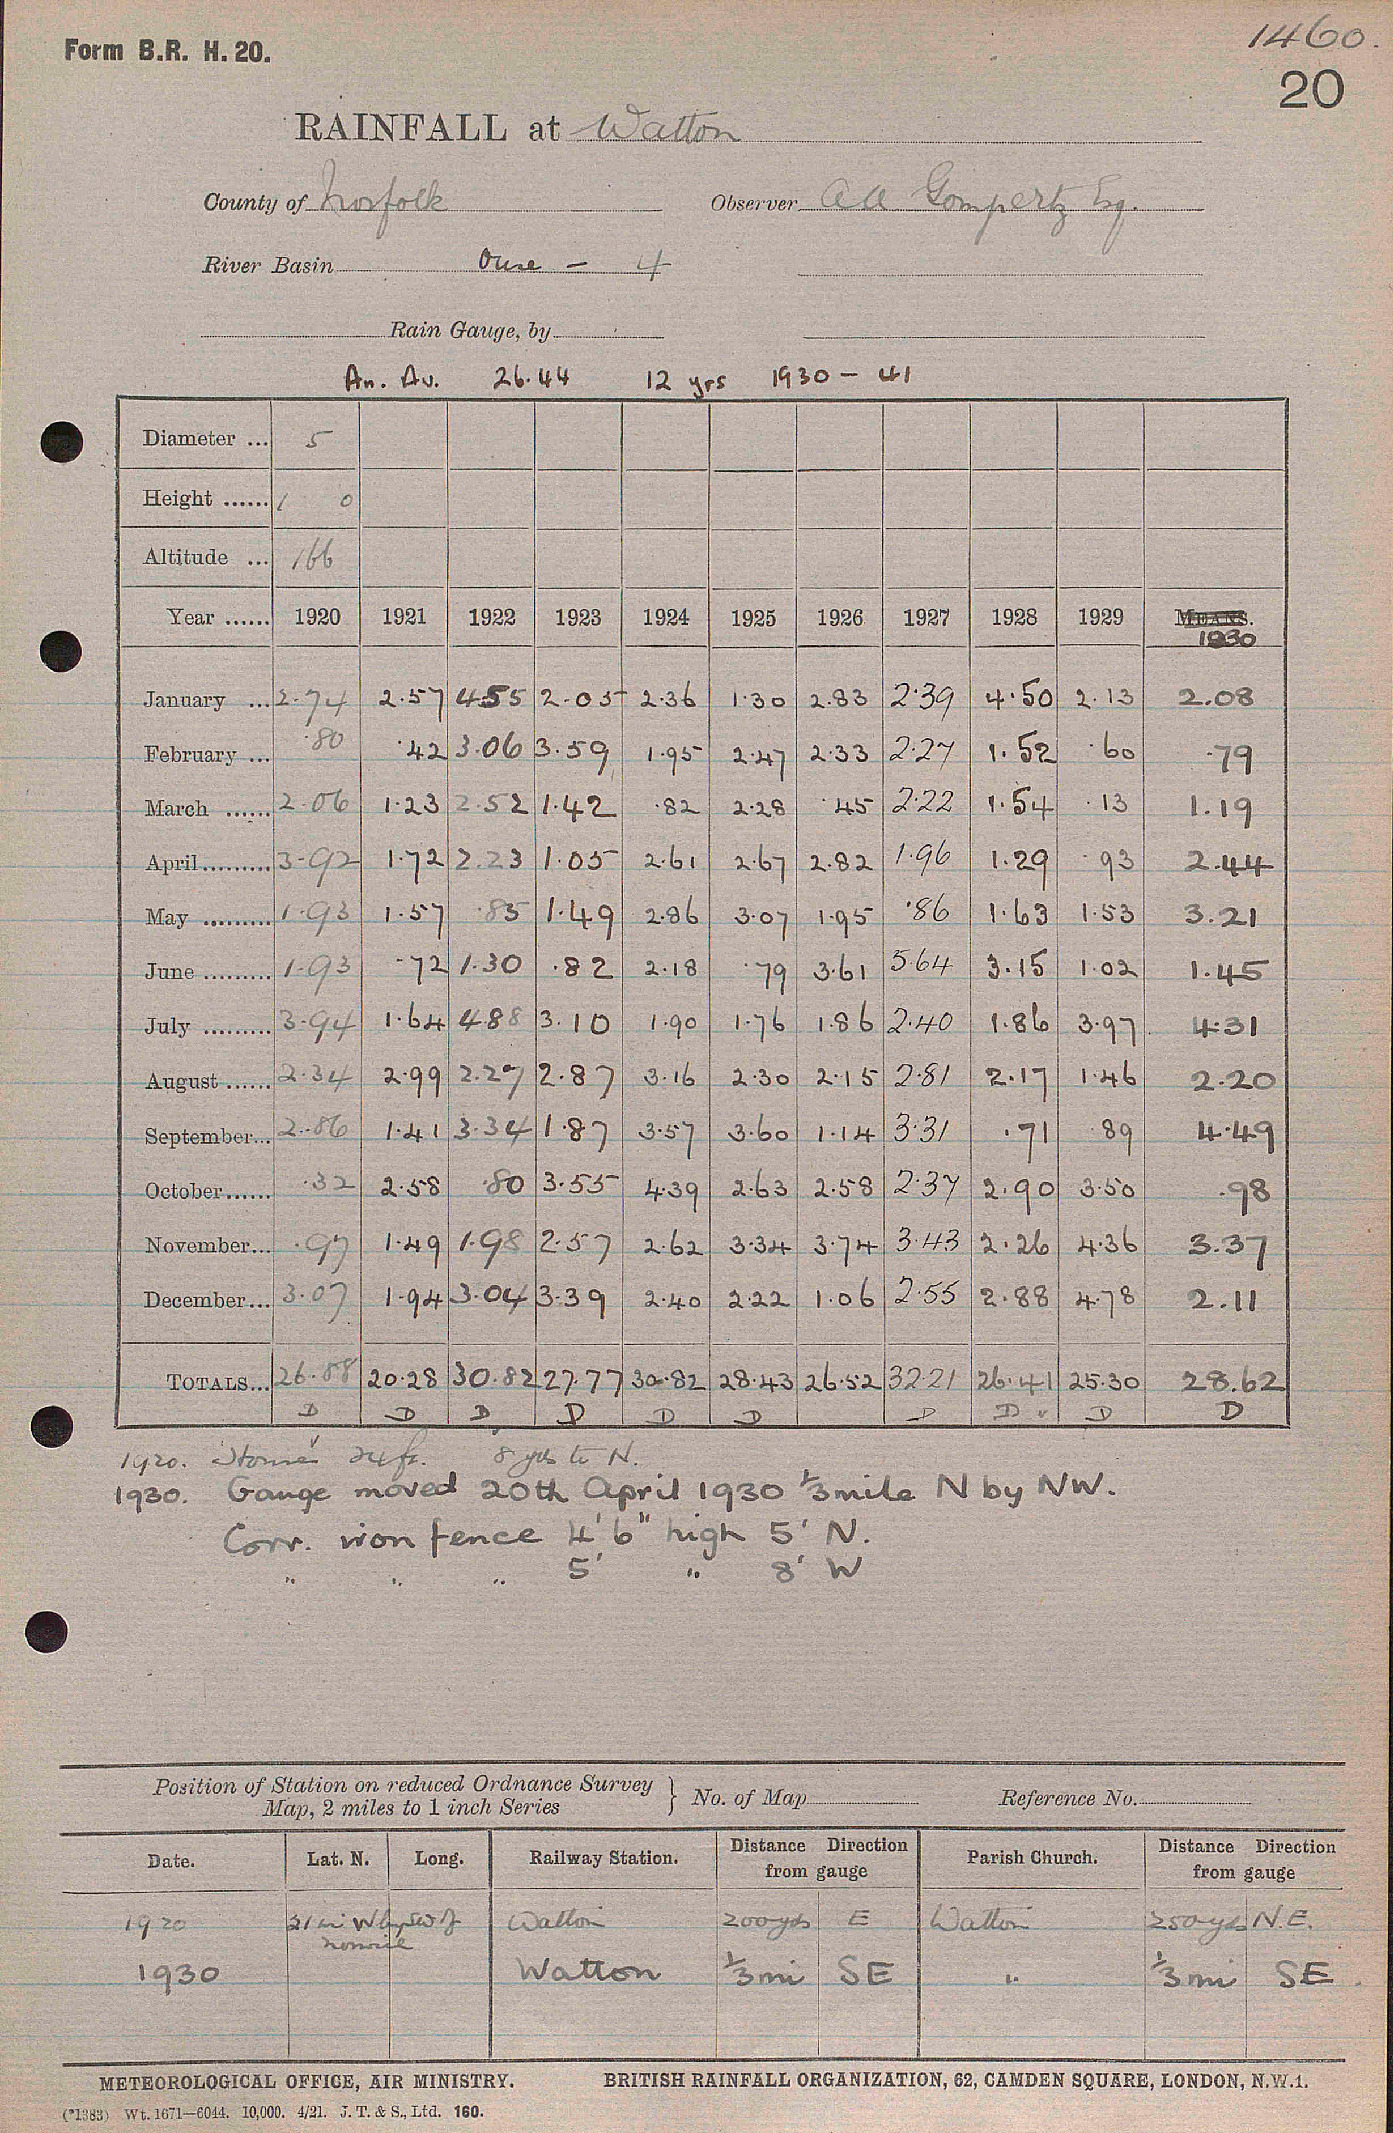 1460.
Form B.R. H. 20.
20
RAINFALL at Watton
County of Norfolk Observer A A Gompertz Esq.
River Basin Ouse — 4
Rain Gauge, by
An. Av. 26.44 12 yrs 1930 – 41
Diameter ... 5
Height ...... 1 0
Altitude ... 166
Year ...... 1920 1921 1922 1923 1924 1925 1926 1927 1928 1929 MEANS. 1930
January ... 2.74 2.57 4.55 2.05 2.36 1.30 2.83 2.39 4.50 2.13 2.08
February ... .80 .42 3.06 3.59 1.95 2.47 2.33 2.27 1.52 .60 .79
March ...... 2.06 1.23 2.52 1.42 .82 2.28 .45 2.22 1.54 .13 1.19
April ......... 3.92 1.72 2.23 1.05 2.61 2.67 2.82 1.96 1.29 .93 2.44
May ......... 1.93 1.57 .85 1.49 2.86 3.07 1.95 .86 1.63 1.53 3.21
June ......... 1.93 .72 1.30 .82 2.18 .79 3.61 5.64 3.15 1.02 1.45
July ......... 3.94 1.64 4.88 3.10 1.90 1.76 1.86 2.40 1.86 3.97 4.31
August ...... 2.34 2.99 2.27 2.87 3.16 2.30 2.15 2.81 2.17 1.46 2.20
September... 2.86 1.41 3.34 1.87 3.57 3.60 1.14 3.31 .71 .89 4.49
October...... .32 2.58 .80 3.55 4.39 2.63 2.58 2.37 2.90 3.50 .98
November... .97 1.49 1.98 2.57 2.62 3.34 3.74 3.43 2.26 4.36 3.37
December... 3.07 1.94 3.04 3.39 2.40 2.22 1.06 2.55 2.88 4.78 2.11
TOTALS... 26.88 20.28 30.82 27.77 30.82 28.43 26.52 32.21 26.41 25.30 28.62
D D D D D D D D D D
1920. House 24 ft. 8 yds to N.
1930. Gauge moved 20th April 1930 1/3 mile N by NW.
Corr. iron fence 4' 6" high 5' N.
" " " 5' " 8' W
Position of Station on reduced Ordnance Survey Map, 2 miles to 1 inch Series } No. of Map Reference No.
Date. Lat. N. Long. Railway Station. Distance Direction from gauge Parish Church. Distance Direction from gauge
1920 21 mi W by S of Norwich Watton 200 yds E Watton 250 yds N.E.
1930 Watton 1/3 mi SE " 1/3 mi SE.
METEOROLOGICAL OFFICE, AIR MINISTRY. BRITISH RAINFALL ORGANIZATION, 62, CAMDEN SQUARE, LONDON, N.W.1.
(*1383) Wt. 1671—6044. 10,000. 4/21. J. T. & S., Ltd. 160.